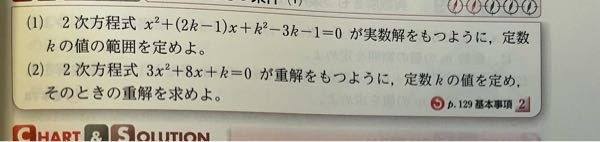 (1) 2次方程式 x²+(2k−1)x+k²−3k−1=0 が実数解をもつように，定数
kの値の範囲を定めよ。
(2) 2次方程式 3x²+8x+k=0 が重解をもつように，定数kの値を定め，
そのときの重解を求めよ。
p.129 基本事項 2
CHART & SOLUTION